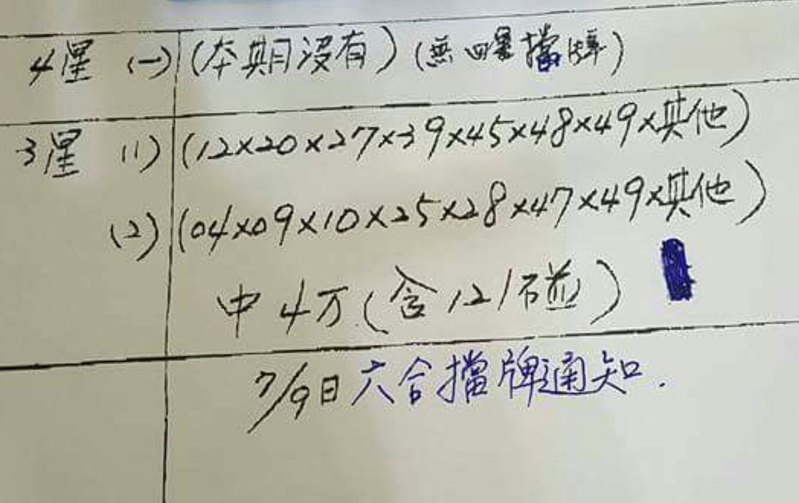 4星 (一) (本期没有) (無四星擋牌)
3星 (1) (12×20×27×39×45×48×49×其他)
(2) (04×09×10×25×28×47×49×其他)
中4万(含121碰)
7/9日六合擋牌通知.